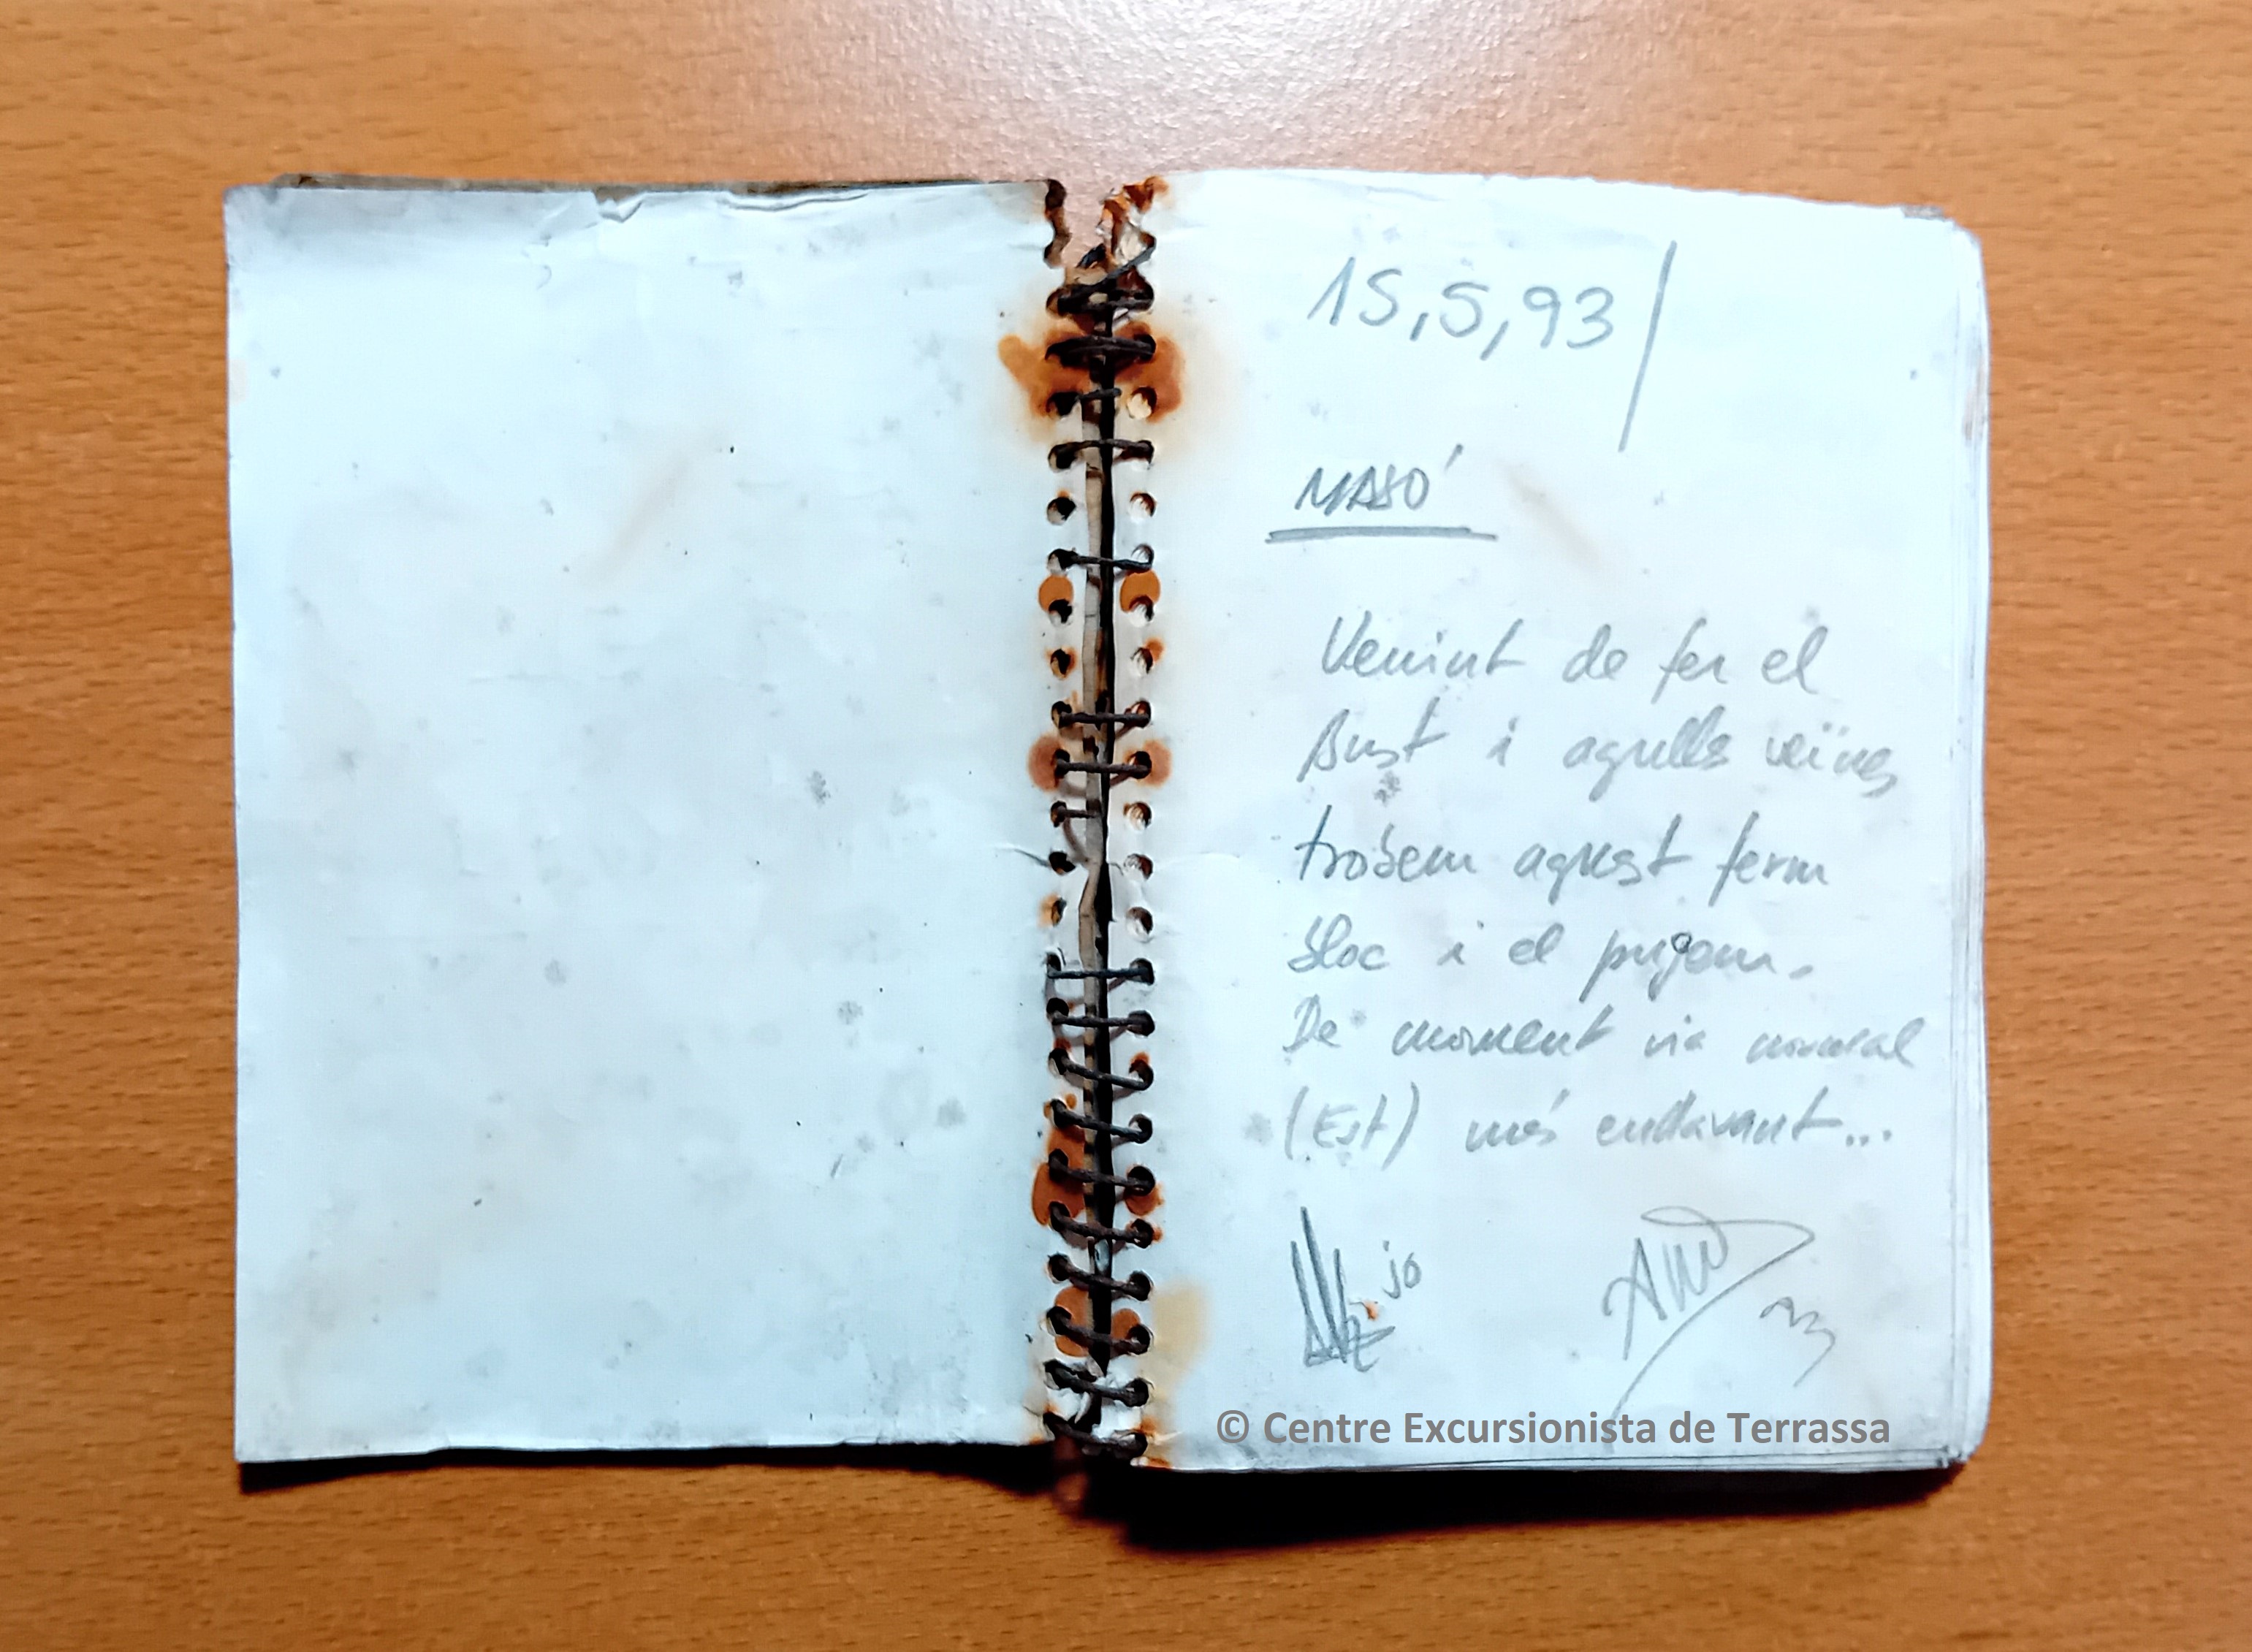 15,5,93/
MASÓ
Venint de fer el
Bust i agulles veïnes
trobem aquest ferm
bloc i el pugem.
De moment via normal
(Est) més endavant...
jo
© Centre Excursionista de Terrassa